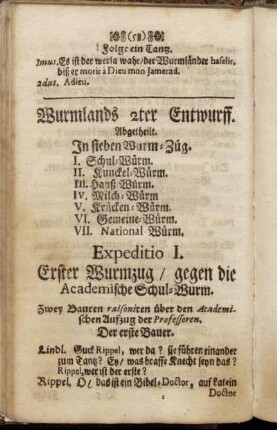 (58)
Folgt ein Tantz.
1mus. Es ist der werla wahr/ der Wurmländer baselir,
biß er morir a Dieu mon Jamerad.
2dus. Adieu.
Wurmlands 2ter Entwurff.
Abgetheilt.
In sieben Wurm-Züg.
I. Schul-Würm.
II. Kunckel-Würm.
III. Hauß-Würm.
IV. Milch-Würm
V. Krücken-Würm.
VI. Gemeine-Würm.
VII. National Würm.
Expeditio I.
Erster Wurmzug / gegen die
Academische Schul-Wurm.
Zwey Bauren raisoniren über den Academi-
schen Aufzug der Professoren.
Der erste Bauer.
Lindl. Guck Rippel, wer da? sie führen einander
zum Tantz? Ey/ was braffe Knecht seyn das?
Rippel, wer ist der erste?
Rippel, O/ das ist ein Bibel-Doctor, auf katein
Doctor